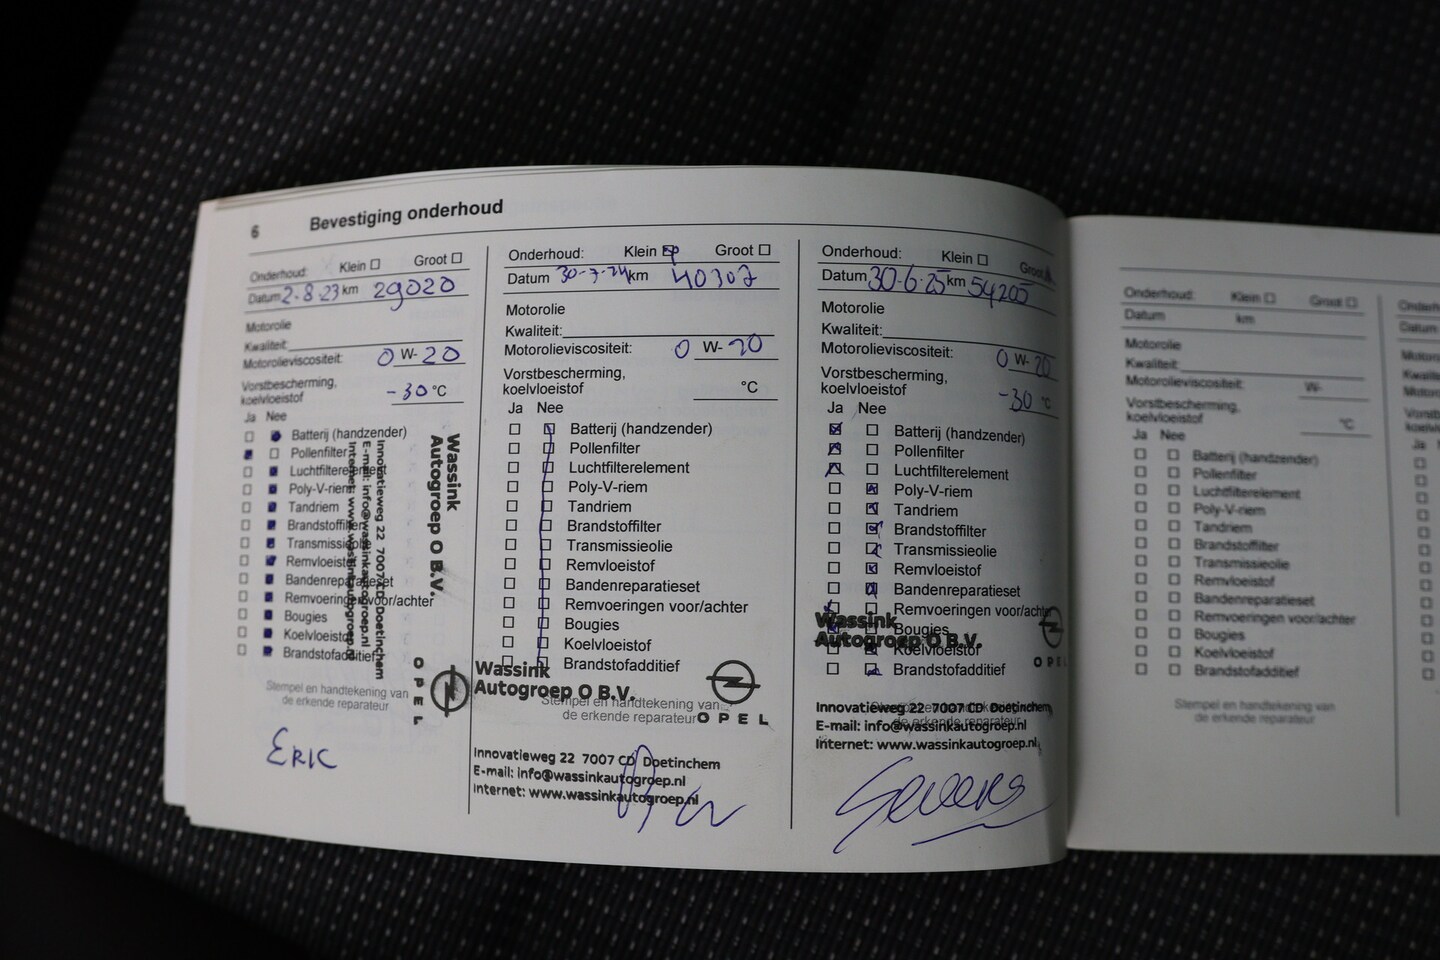 6 Bevestiging onderhoud
Onderhoud: Klein Groot
Datum 2-8-23 km 29020
Motorolie
Kwaliteit:
Motorolieviscositeit: 0 W- 20
Vorstbescherming,
koelvloeistof -30 °C
Ja Nee
Batterij (handzender)
Pollenfilter
Luchtfilterelement
Poly-V-riem
Tandriem
Brandstoffilter
Transmissieolie
Remvloeistof
Bandenreparatieset
Remvoeringen voor/achter
Bougies
Koelvloeistof
Brandstofadditief
Stempel en handtekening van
de erkende reparateur
Wassink
Autogroep O B.V.
Innovatieweg 22 7007 CD Doetinchem
E-mail: info@wassinkautogroep.nl
Internet: www.wassinkautogroep.nl
OPEL
ERIC
Onderhoud: Klein Groot
Datum 30-7-24 km 40307
Motorolie
Kwaliteit:
Motorolieviscositeit: 0 W- 20
Vorstbescherming,
koelvloeistof °C
Ja Nee
Batterij (handzender)
Pollenfilter
Luchtfilterelement
Poly-V-riem
Tandriem
Brandstoffilter
Transmissieolie
Remvloeistof
Bandenreparatieset
Remvoeringen voor/achter
Bougies
Koelvloeistof
Brandstofadditief
Wassink
Autogroep O B.V.
Stempel en handtekening van
de erkende reparateur
OPEL
Innovatieweg 22 7007 CD Doetinchem
E-mail: info@wassinkautogroep.nl
Internet: www.wassinkautogroep.nl
Onderhoud: Klein Groot
Datum 30-6-25 km 54205
Motorolie
Kwaliteit:
Motorolieviscositeit: 0 W- 20
Vorstbescherming,
koelvloeistof -30 °C
Ja Nee
Batterij (handzender)
Pollenfilter
Luchtfilterelement
Poly-V-riem
Tandriem
Brandstoffilter
Transmissieolie
Remvloeistof
Bandenreparatieset
Remvoeringen voor/achter
Bougies
Koelvloeistof
Brandstofadditief
Wassink
Autogroep O B.V.
OPEL
Innovatieweg 22 7007 CD Doetinchem
de erkende reparateur
E-mail: info@wassinkautogroep.nl
Internet: www.wassinkautogroep.nl
Onderhoud: Klein Groot
Datum km
Motorolie
Kwaliteit:
Motorolieviscositeit: W-
Vorstbescherming,
koelvloeistof °C
Ja Nee
Batterij (handzender)
Pollenfilter
Luchtfilterelement
Poly-V-riem
Tandriem
Brandstoffilter
Transmissieolie
Remvloeistof
Bandenreparatieset
Remvoeringen voor/achter
Bougies
Koelvloeistof
Brandstofadditief
Stempel en handtekening van
de erkende reparateur